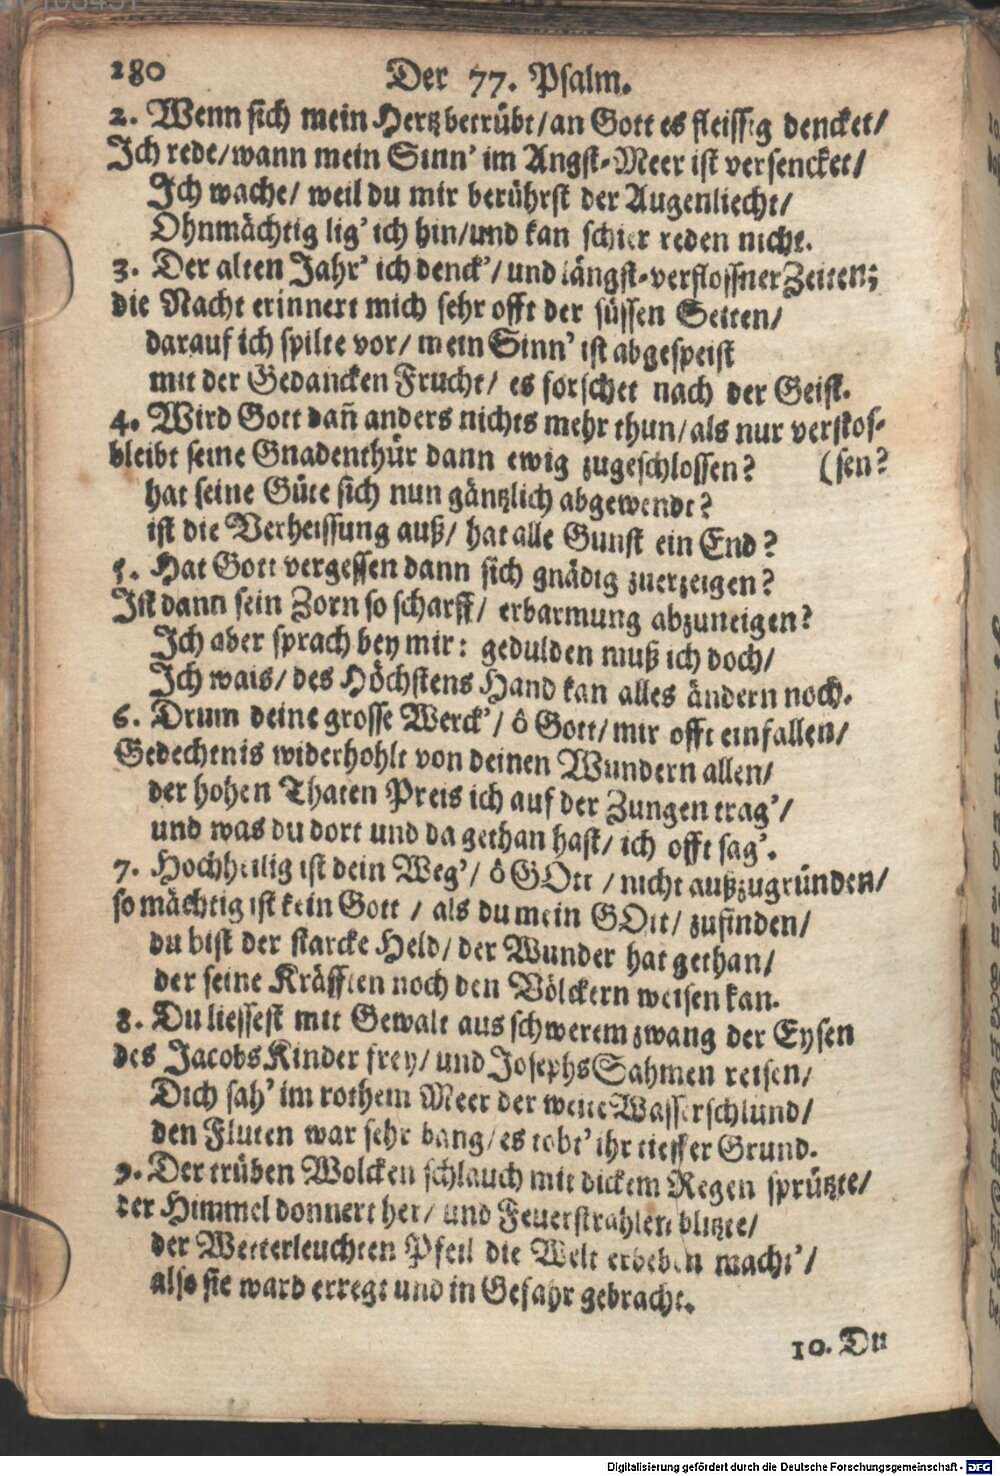 280
Der 77. Psalm.
2. Wenn sich mein Hertz betrübt/an Gott es fleissig dencket/
Ich rede/wann mein Sinn' im Angst-Meer ist versencket/
Ich wache/ weil du mir berührst der Augenliecht/
Ohnmächtig lig' ich hin/und kan schier reden nicht.
3. Der alten Jahr' ich denck'/ und längst-verflossner Zeiten;
die Nacht erinnert mich sehr offt der süssen Seiten/
darauf ich spilte vor/ mein Sinn' ist abgespeist
mit der Gedancken Frucht/ es forschet nach der Geist.
4. Wird Gott dañ anders nichts mehr thun/als nur verstos-
bleibt seine Gnadenthür dann ewig zugeschlossen? (sen?
hat seine Güte sich nun gäntzlich abgewendt?
ist die Verheissung auß/ hat alle Gunst ein End?
5. Hat Gott vergessen dann sich gnädig zuerzeigen?
Ist dann sein Zorn so scharff/ erbarmung abzuneigen?
Ich aber sprach bey mir: gedulden muß ich doch/
Ich wais/ des Höchstens Hand kan alles ändern noch.
6. Drum deine grosse Werck'/ ô Gott/ mir offt einfallen/
Gedechtnis widerhohlt von deinen Wundern allen/
der hohen Thaten Preis ich auf der Zungen trag'/
und was du dort und da gethan hast/ ich offt sag'.
7. Hochheilig ist dein Weg'/ ô GOtt / nicht außzugründen/
so mächtig ist kein Gott / als du mein GOtt/ zufinden/
du bist der starcke Held/ der Wunder hat gethan/
der seine Kräfften noch den Völckern weisen kan.
8. Du liessest mit Gewalt aus schwerem zwang der Eysen
des Jacobs Kinder frey/ und Josephs Sahmen reisen/
Dich sah' im rothem Meer der weite Wasserschlund/
den Fluten war sehr bang/ es tobt' ihr tieffer Grund.
9. Der trüben Wolcken schlauch mit dickem Regen sprützte/
der Himmel donnert her/ und Feuerstrahlen blitzte/
der Wetterleuchten Pfeil die Welt erbeben macht'/
also sie ward erregt und in Gefahr gebracht.
10. Du
Digitalisierung gefördert durch die Deutsche Forschungsgemeinschaft - DFG